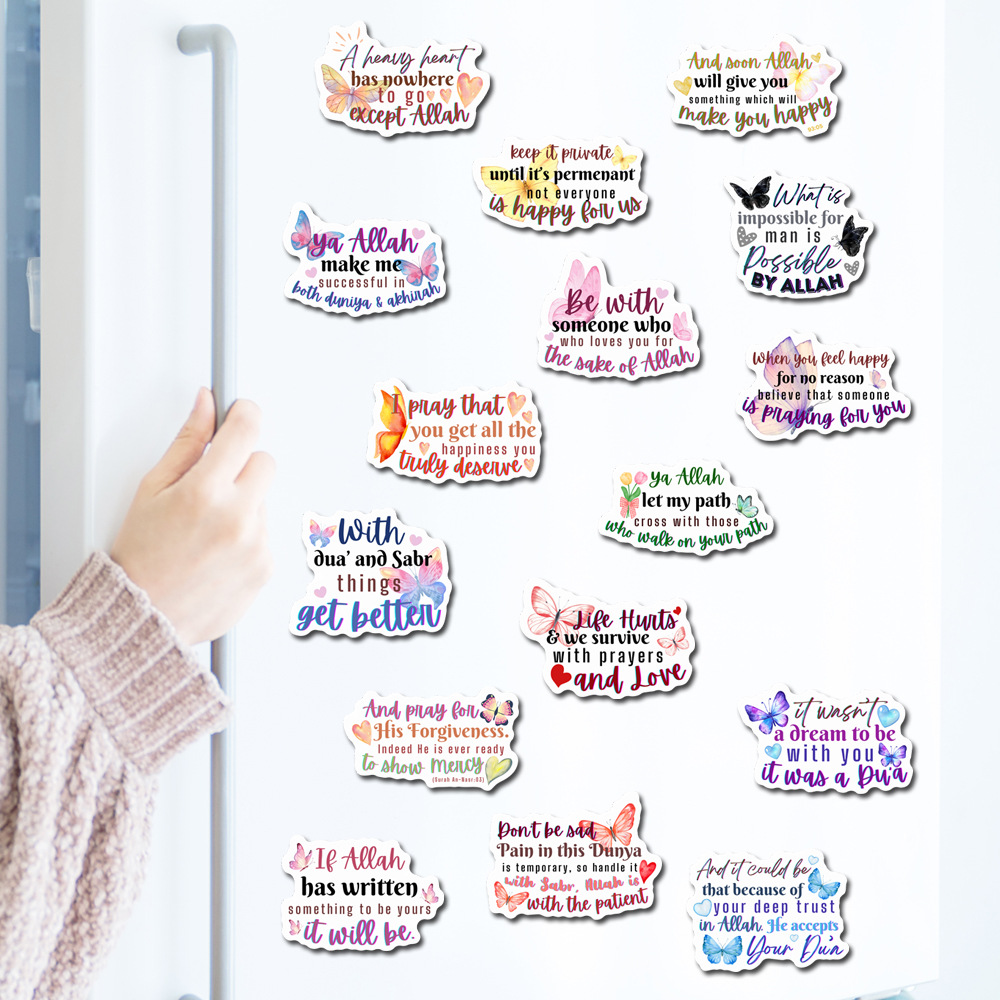 A heavy heart
has nowhere
to go
except Allah
And soon Allah
will give you
something which will
make you happy
93:05
keep it private
until it's permenant
not everyone
is happy for us
What is
impossible for
man is
Possible
BY ALLAH
Ya Allah
make me
successful in
both duniya & akhirah
Be with
someone who
who loves you for
the sake of Allah
When you feel happy
for no reason
believe that someone
is praying for you
I pray that
you get all the
happiness you
truly deserve
Ya Allah
let my path
cross with those
who walk on your path
With
dua' and Sabr
things
get better
Life Hurts
& we survive
with prayers
and Love
And pray for
His Forgiveness.
Indeed He is ever ready
to show Mercy
(Surah An-Nasr:03)
it wasn't
a dream to be
with you
it was a Du'a
If Allah
has written
something to be yours
it will be.
Don't be sad
Pain in this Dunya
is temporary, so handle it
with Sabr, Allah is
with the patient
And it could be
that because of
your deep trust
in Allah, He accepts
Your Du'a